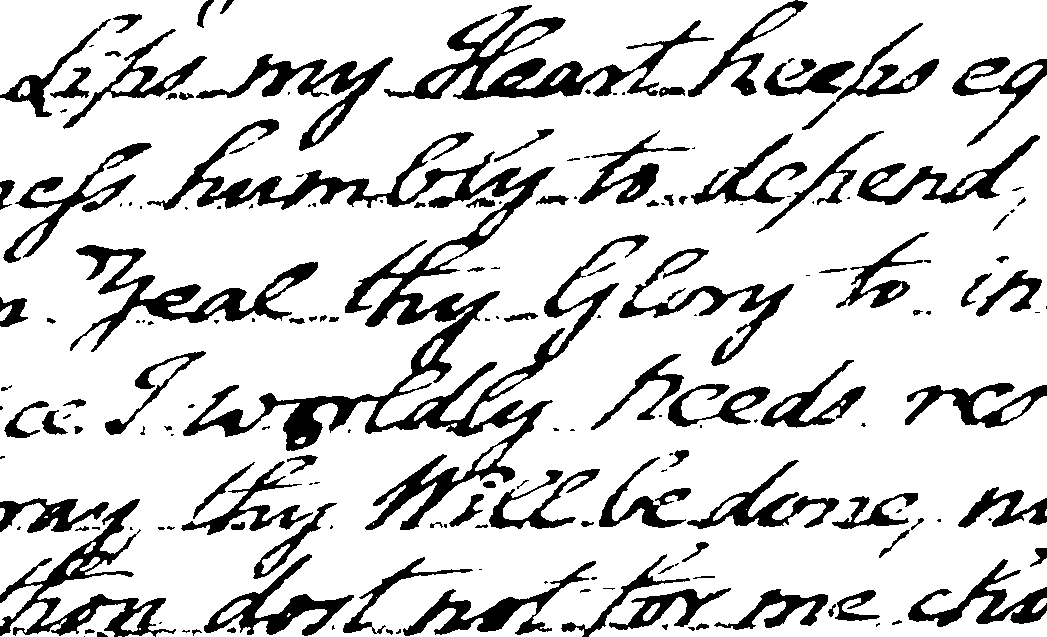 Lips my Heart keeps eq
ness humbly to depend,
n Zeal thy Glory to in
ce I worldly needs res
ray thy Will be done, n
thou dost not for me cho